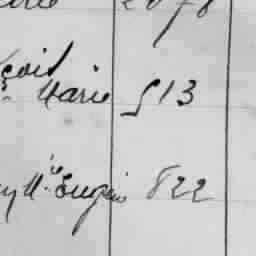 2078
çois
Marie 513
y M.ie Eugénie 822